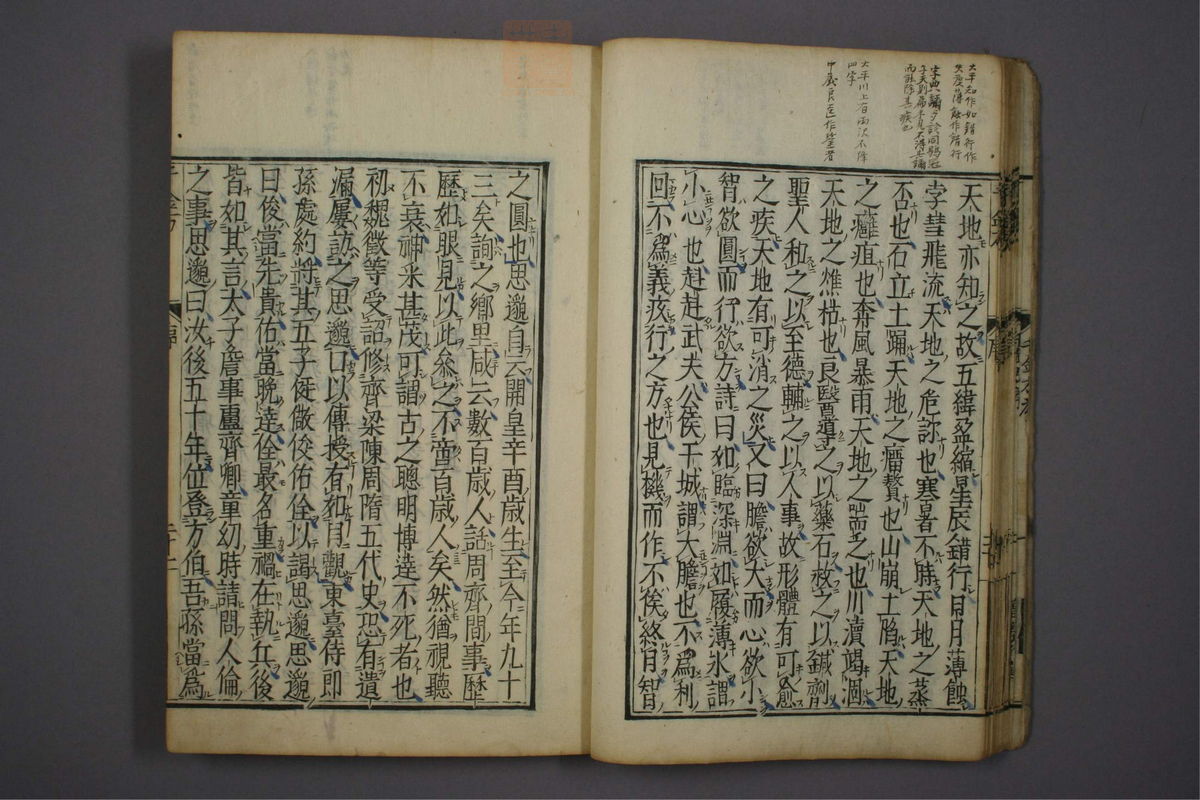 太平知作如錯行作
失度薄蝕作錯行
太平川上有雨沢不降
四字
中義良医作鑒者
天地亦知之故五緯盈縮星辰錯行日月薄蝕
孛彗飛流天地之危診也寒暑不時天地之蒸
否也石立土踊天地之瘤贅也山崩土陷天地
之癰疽也奔風暴雨天地之喘乏也川瀆竭涸
天地之燋枯也良醫導之以藥石救之以鍼劑
聖人和之以至德輔之以人事故形體有可愈
之疾天地有可消之災又曰膽欲大而心欲小
智欲圓而行欲方詩曰如臨深淵如履薄氷謂
小心也赳赳武夫公侯干城謂大膽也不為利
回不為義疚行之方也見機而作不俟終日智
之圓也思邈自云開皇辛酉歲生至今年九十
三矣詢之鄉里咸云數百歲人話周齊間事歷
歷如眼見以此叅之不啻百歲人矣然猶視聽
不衰神采甚茂可謂古之聰明博達不死者也
初魏徵等受詔修齊梁陳周隋五代史恐有遺
漏屢訪之思邈口以傳授有如目觀東臺侍郎
孫處約將其五子侹儆俊佑佺以謁思邈思邈
曰俊當先貴佑當晚達佺最名重禍在執兵後
皆如其言太子詹事盧齊卿童幼時請問人倫
之事思邈曰汝後五十年位登方伯吾孫當為